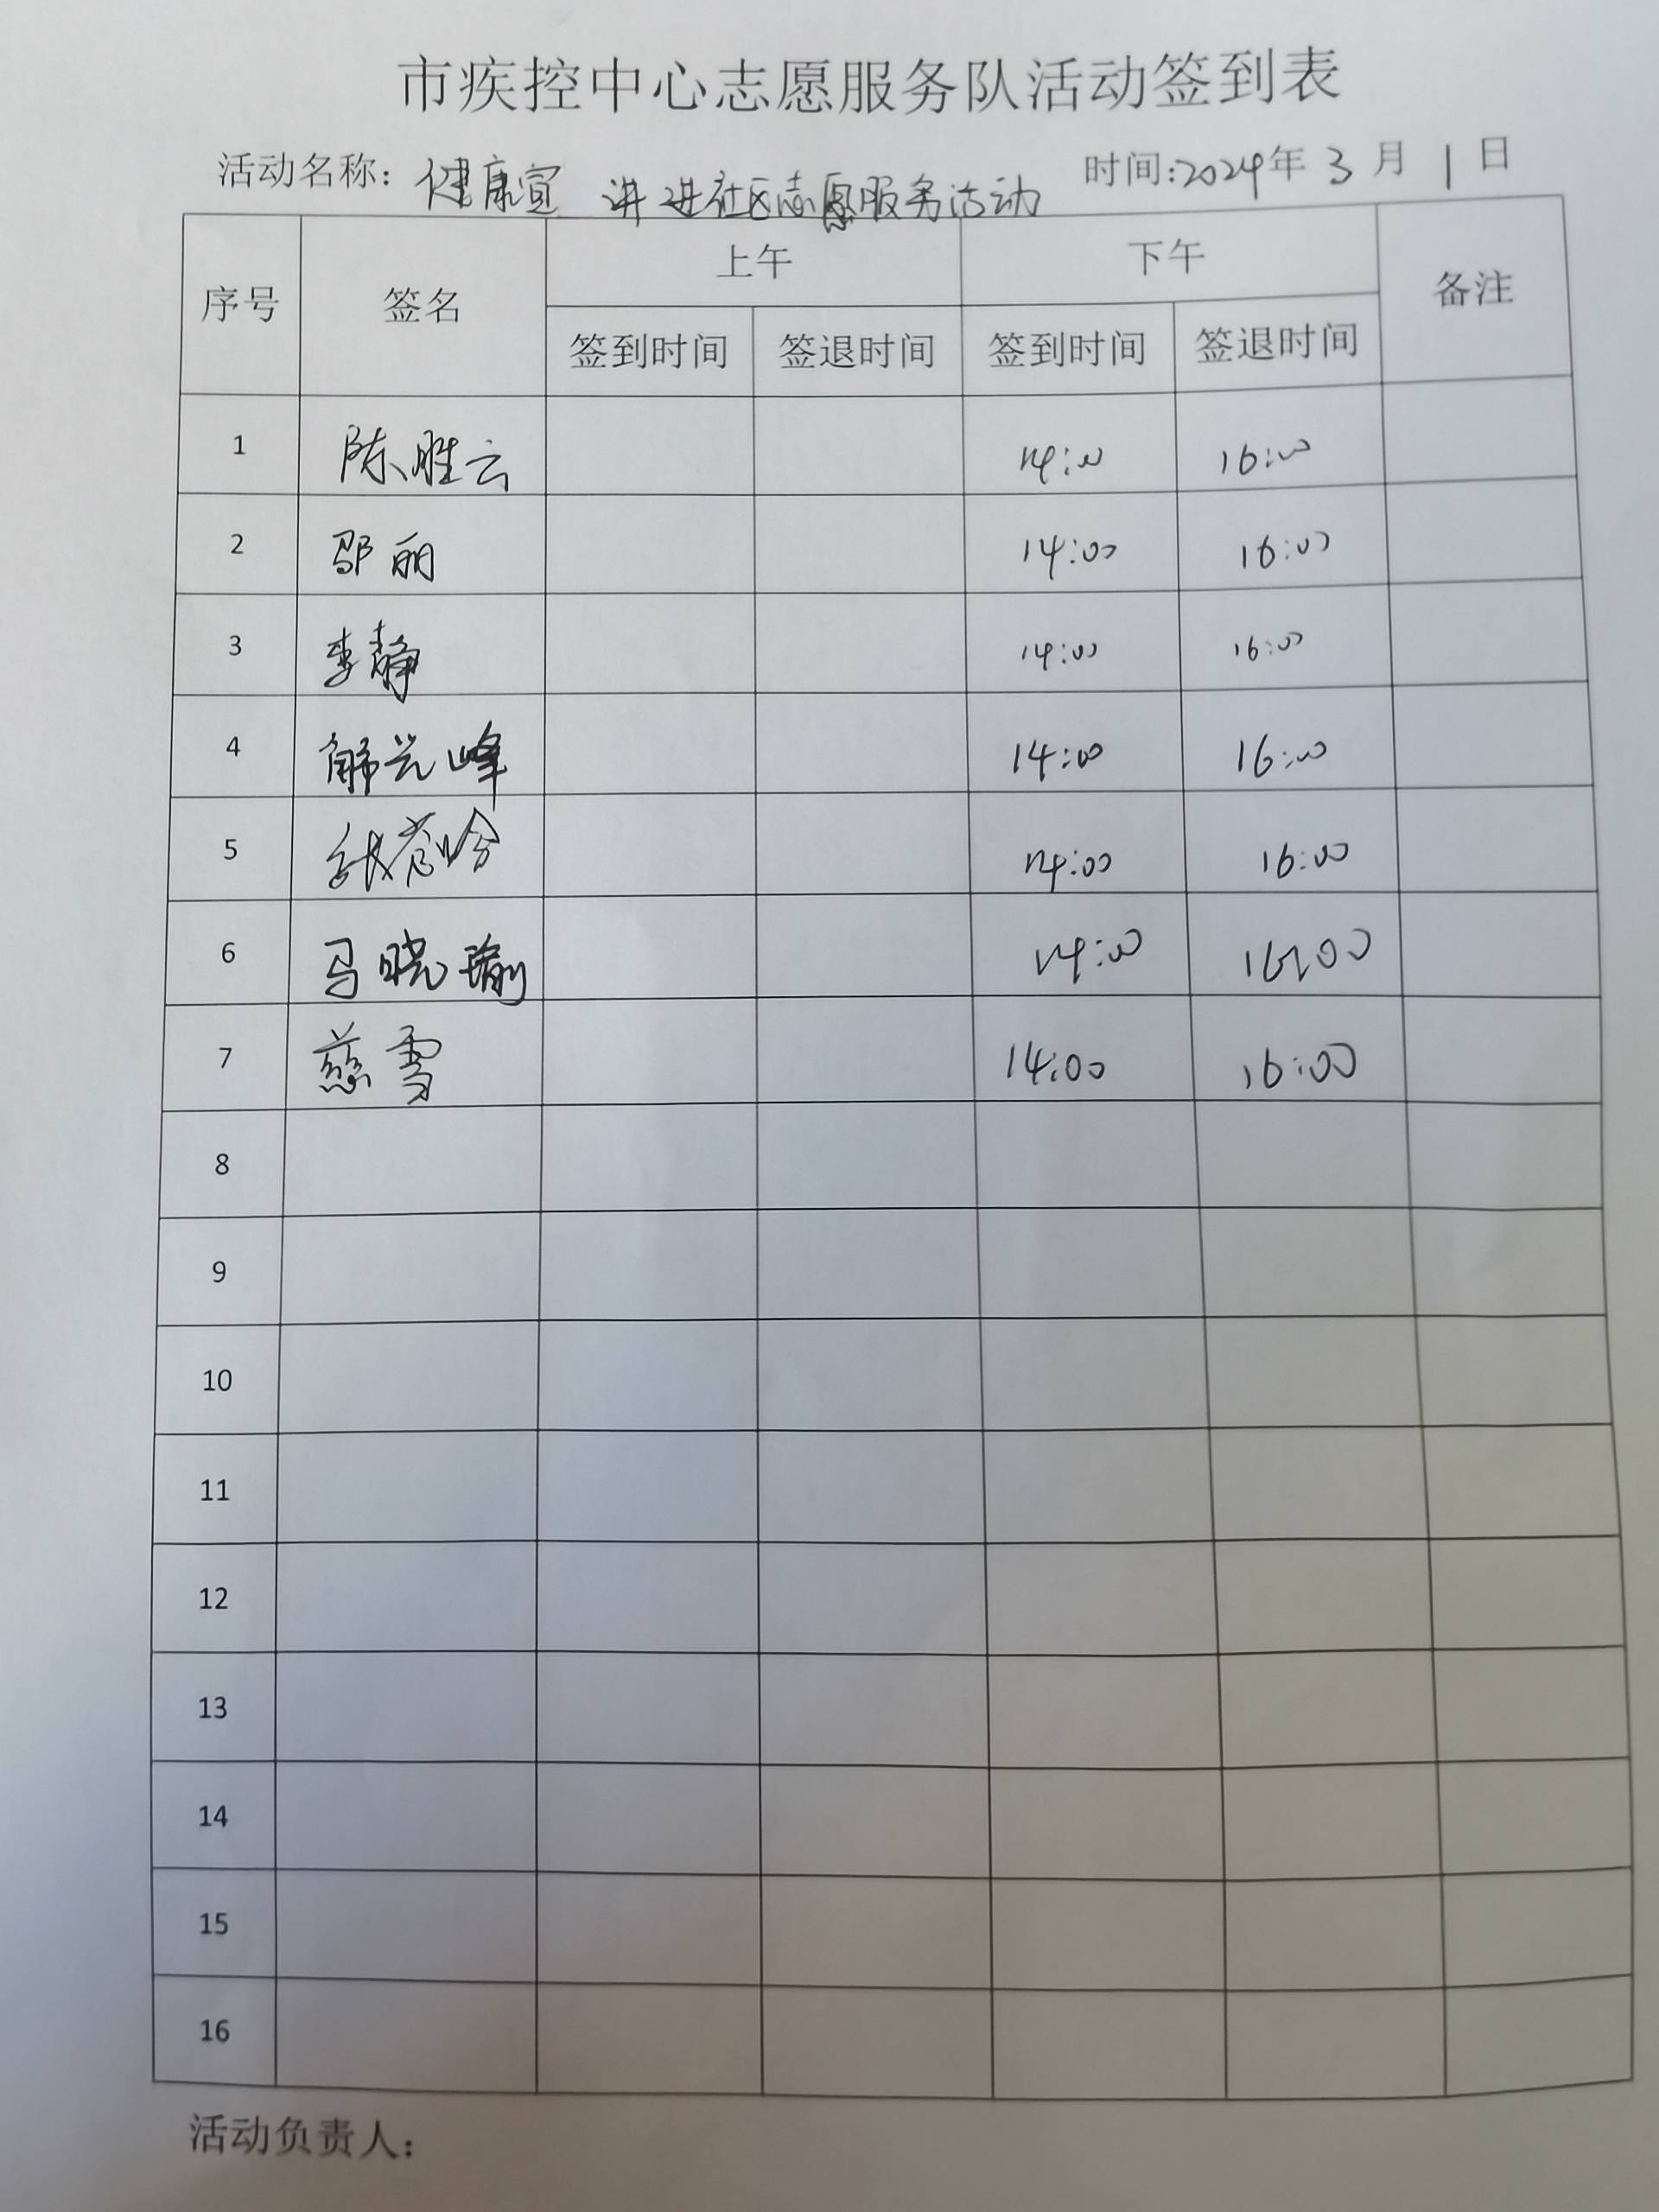 市疾控中心志愿服务队活动签到表
活动名称：健康宣 讲进社区志愿服务活动 时间:2024年3月1日
序号 签名 上午 下午 备注
签到时间 签退时间 签到时间 签退时间
1 陈胜云 14:00 16:00
2 邬丽 14:00 16:00
3 李静 14:00 16:00
4 解光峰 14:00 16:00
5 14:00 16:00
6 马晓瑜 14:00 16:00
7 慈雪 14:00 16:00
8
9
10
11
12
13
14
15
16
活动负责人：